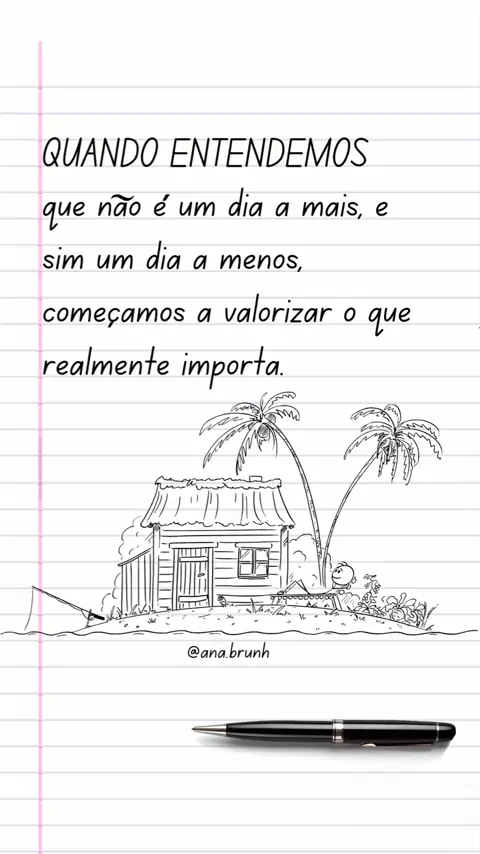 QUANDO ENTENDEMOS
que não é um dia a mais, e
sim um dia a menos,
começamos a valorizar o que
realmente importa.
@ana.brunh